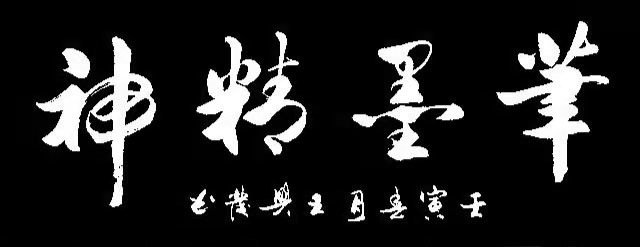 筆墨精神
壬寅春月王興發书